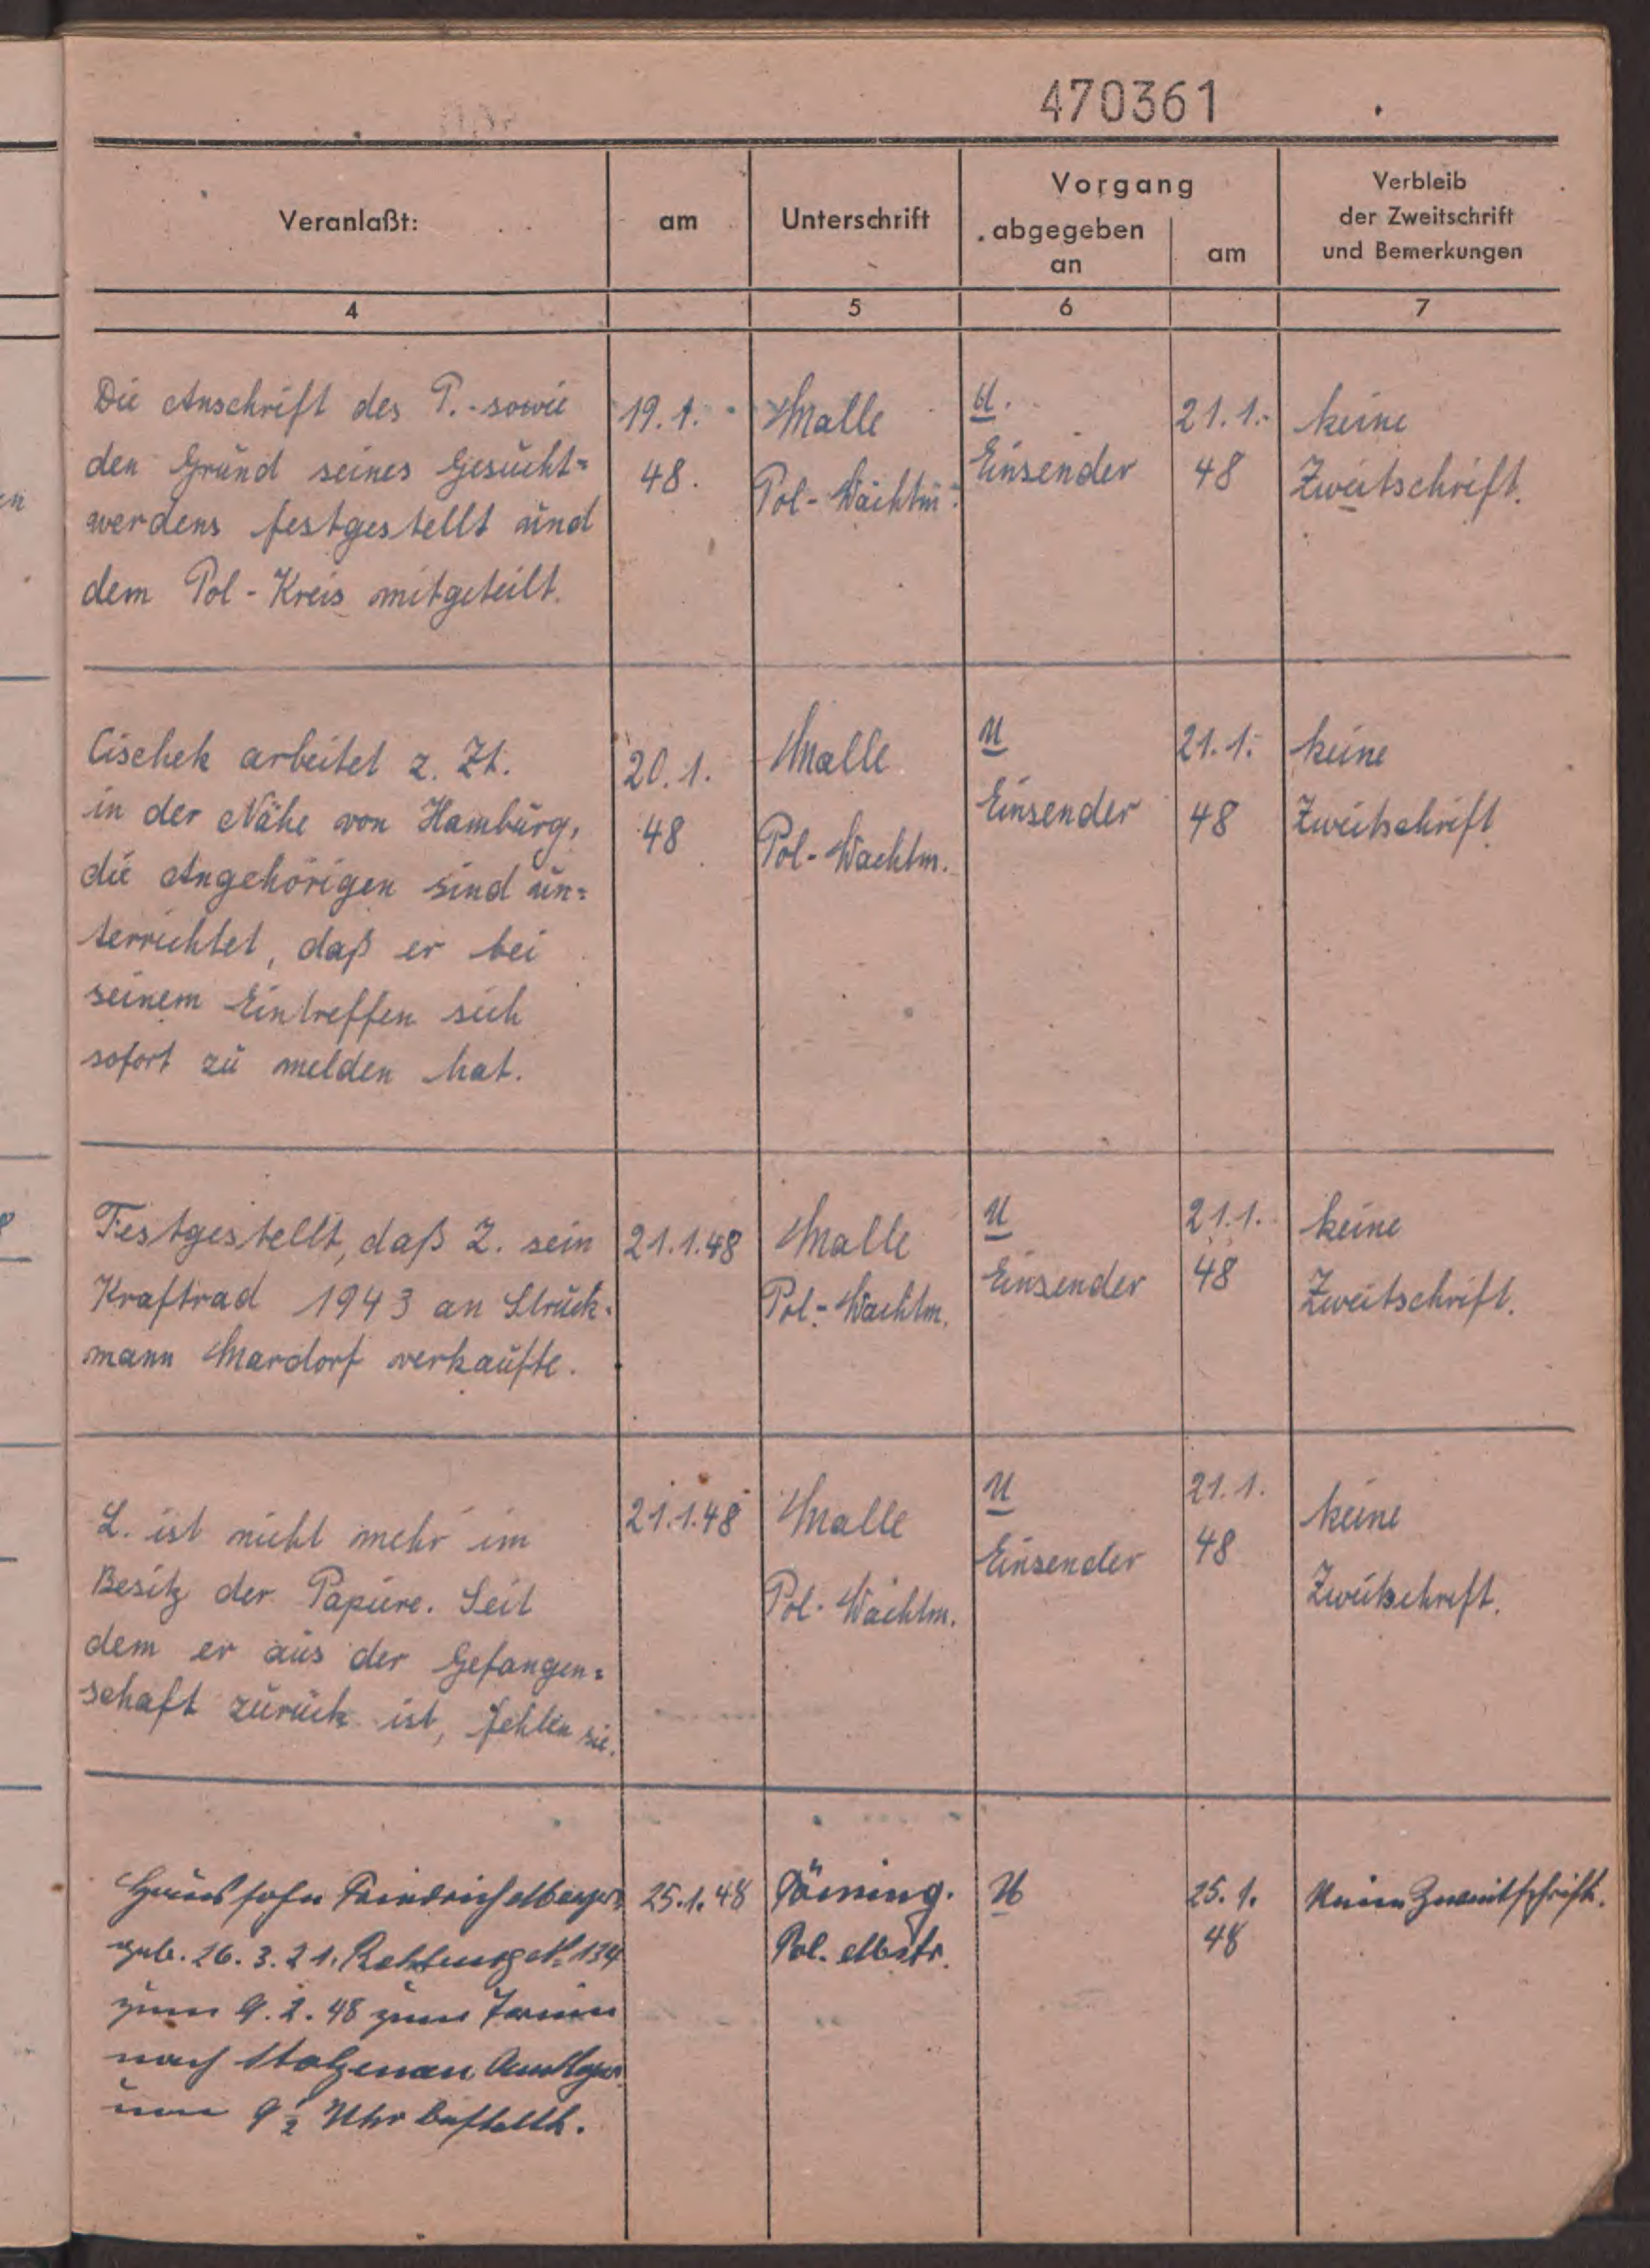 470361
Veranlaßt:
am
Unterschrift
Vorgang
abgegeben
an
am
Verbleib
der Zweitschrift
und Bemerkungen
4
5
6
7
Die Anschrift des P. sowie
den Grund seines Gesucht=
werdens festgestellt und
dem Pol-Kreis mitgeteilt.
19.1.
48.
Malle
Pol-Wachtm.
U.
Einsender
21.1.
48
keine
Zweitschrift.
Cischek arbeitet z. Zt.
in der Nähe von Hamburg,
die Angehörigen sind un=
terrichtet, daß er bei
seinem Eintreffen sich
sofort zu melden hat.
20.1.
48
Malle
Pol-Wachtm.
U
Einsender
21.1.
48
keine
Zweitschrift
Festgestellt, daß Z. sein
Kraftrad 1943 an Struck-
mann Mardorf verkaufte.
21.1.48
Malle
Pol-Wachtm.
U
Einsender
21.1.
48
keine
Zweitschrift.
L. ist nicht mehr im
Besitz der Papiere. Seit
dem er aus der Gefangen=
schaft zurück ist, fehlen sie.
21.1.48
Malle
Pol-Wachtm.
U
Einsender
21.1.
48
keine
Zweitschrift.
Haussohn Friedrich
geb. 26.3.21. Rehburg No 134
zum 9.2.48 zum Termin
nach Stolzenau
um 9 1/2 Uhr bestellt.
25.1.48
Pol. Mstr.
U
25.1.
48
Keine Zweitschrift.